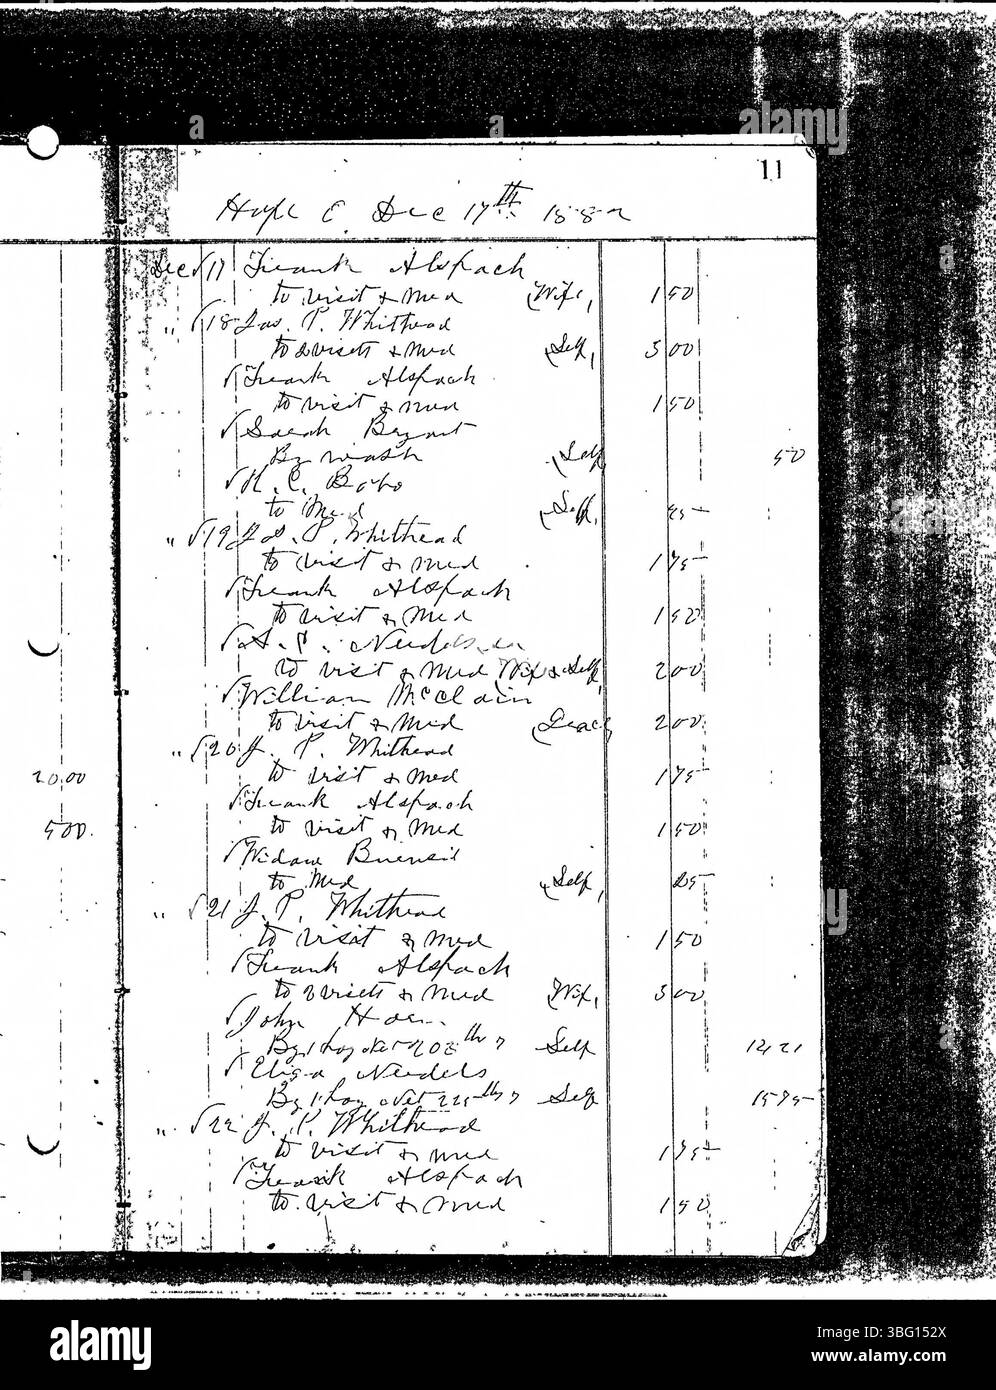 11
Hope O Dec 17th 1882
Dec √17 Frank Alspach
to visit & Med (Wife, 1 50
" √18 Jas. P. Whithead
to 2 visits & Med (Self, 3 00
√Frank Alspach
to visit & med 1 50
√Sarah Bryant
By wash (Self 50
√H. C. Bobo
to Med (Self, 25
" √19 Jas. P. Whithead
to visit & med 1 75
√Frank Alspach
to visit & Med 1 50
√A. P. Needels
to visit & Med Wife & Self, 2 00
√William McClain
to visit & Med (Grace 2 00
" √20 J. P. Whithead
20.00 to visit & Med 1 75
√Frank Alspach
5 00. to visit & Med 1 50
√Widow
to Med (Self, 25
" √21 J. P. Whithead
to visit & Med 1 50
√Frank Alspach
to 2 visits & Med (Wife, 3 00
√John
By 1 hog net 203 lbs Self 14,21
√Needels
By 1 hog Net 225 lbs Self 15 75
" √22 J. P. Whithead
to visit & Med 1 75
√Frank Alspach
to visit & Med 1 50
alamy
Image ID: 3BG152X
www.alamy.com